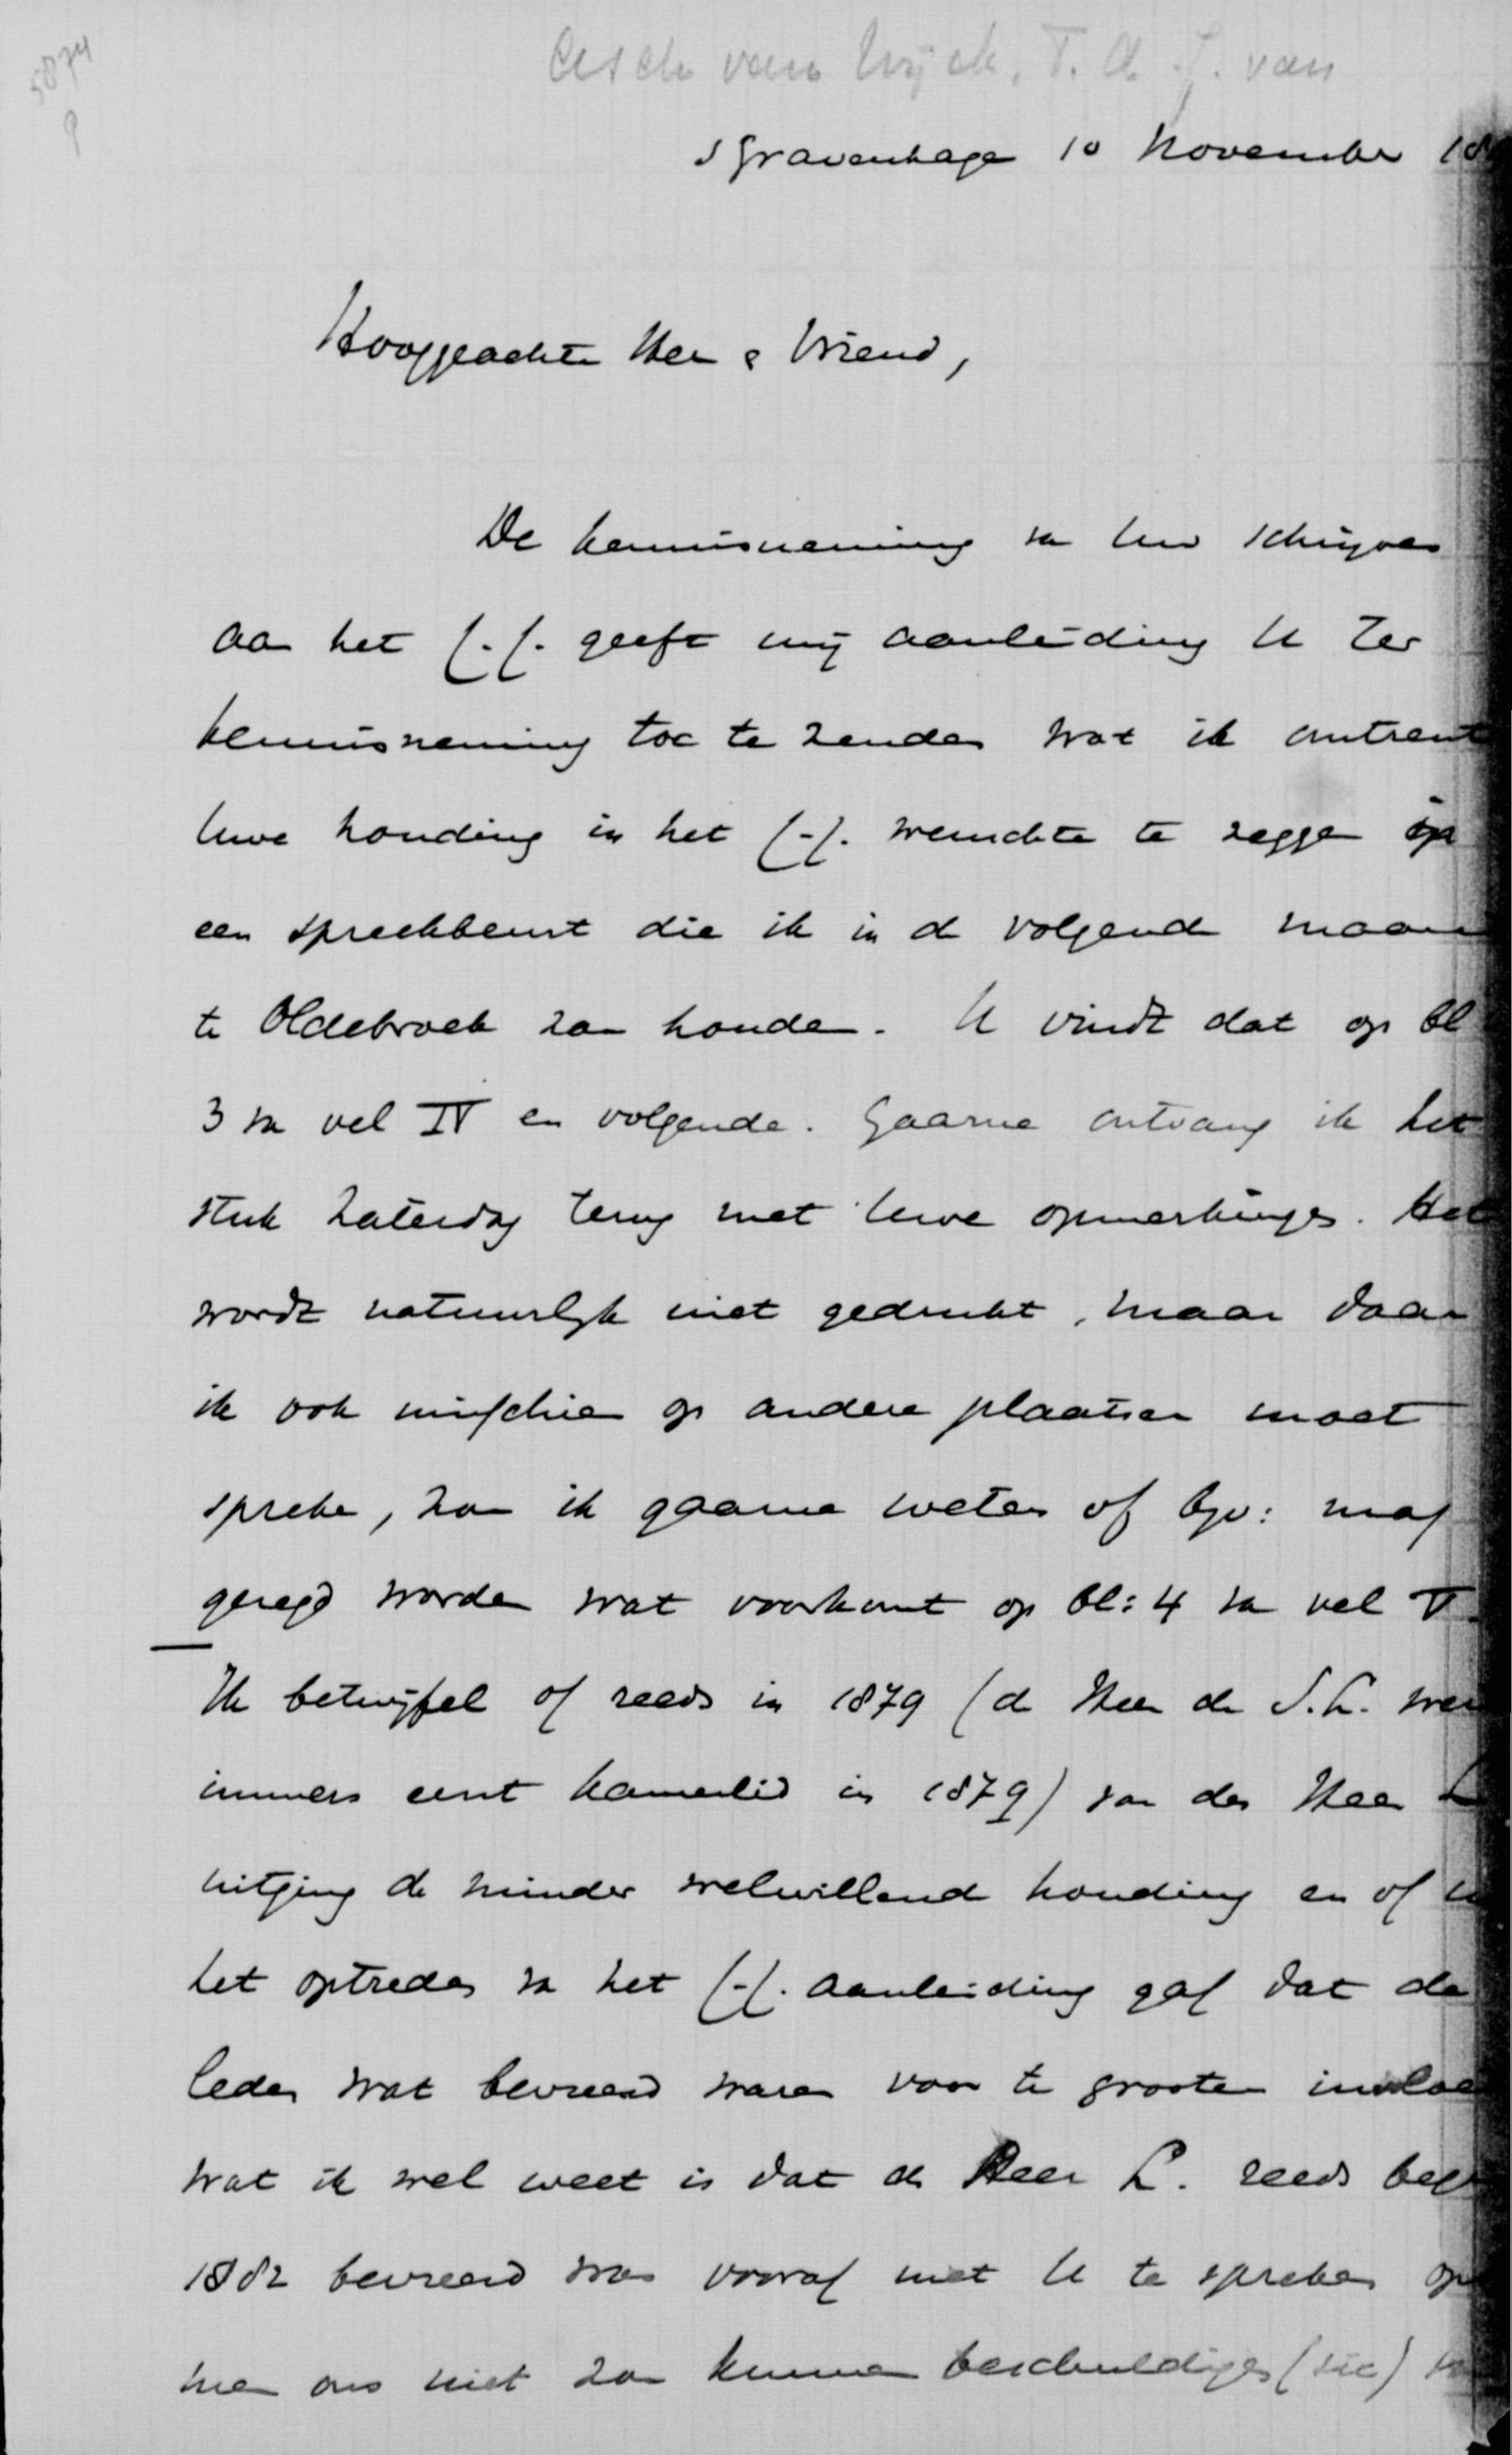 5074
9
Asch van Wijck, T. A. J. van
sGravenhage 10 November 18
Hooggeachte Heer & Vriend,
De kennisneming van Uw schrijven
aan het C.C. geeft mij aanleiding U ter
kennisneming toe te zenden wat ik omtrent
Uwe houding in het C.C. wenschte te zeggen op
een spreekbeurt die ik in de volgende maan
te Oldebroek zou houden. U vindt dat op bl
3 van vel IV en volgende. Gaarne ontvang ik het
stuk Zaterdag terug met Uwe opmerkingen. Het
wordt natuurlijk niet gedrukt, maar daar
ik ook misschien op andere plaatsen moet
spreken, zou ik gaarne weten of bijv: mag
gezegd worden wat voorkomt op bl: 4 van vel V.
Ik betwijfel of reeds in 1879 (de Heer de S.L. werd
immers eerst kamerlid in 1879) van den Heer L
uitging de minder welwillende houding en of
het optreden van het C.C. aanleiding gaf dat de
leden wat bevreesd waren voor te grooten invloe
Wat ik wel weet is dat de Heer L. reeds
1882 bevreesd was vooraf met U te spreken op
men ons niet zou kunnen beschuldigen (sic)